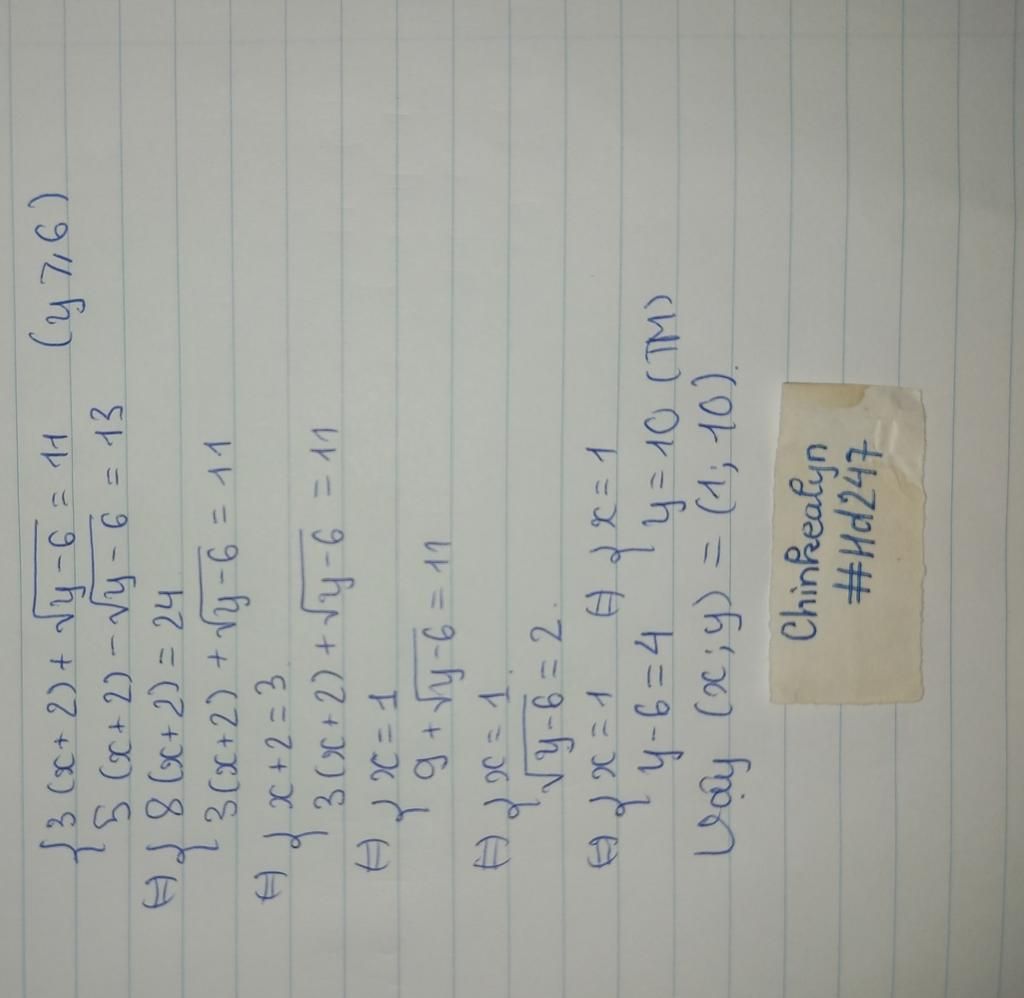 { 3(x+2) + √(y-6) = 11 (y ⩾ 6)
5(x+2) - √(y-6) = 13
(=) { 8(x+2) = 24
3(x+2) + √(y-6) = 11
(=) { x+2 = 3
3(x+2) + √(y-6) = 11
(=) { x = 1
9 + √(y-6) = 11
(=) { x = 1
√(y-6) = 2.
(=) { x = 1 (=) { x = 1
y-6 = 4 y = 10 (TM)
Vậy (x; y) = (1; 10).
Chinkealyn
#Hd247